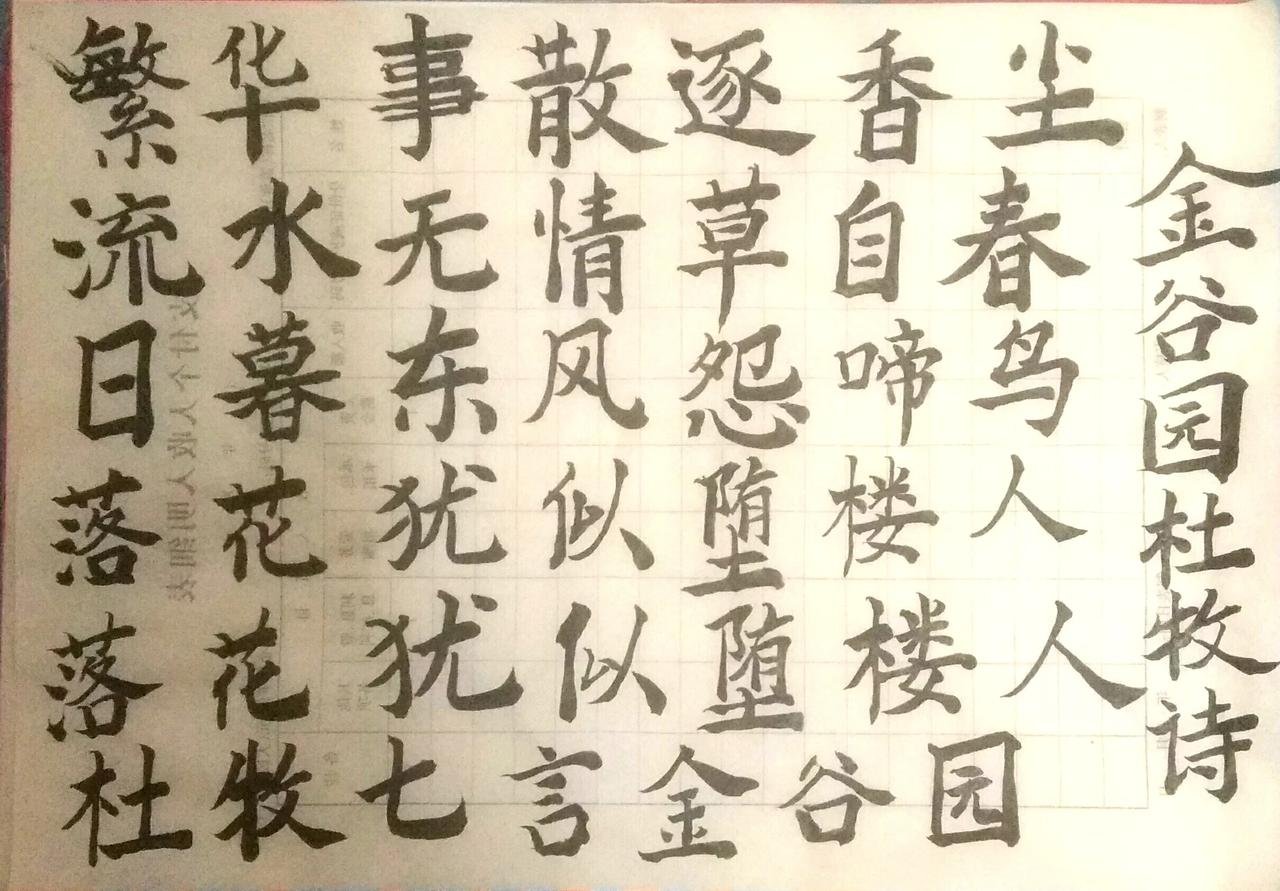 繁华事散逐香尘
流水无情草自春
日暮东风怨啼鸟
落花犹似堕楼人
落花犹似堕楼人
杜牧七言金谷园
金谷园杜牧诗